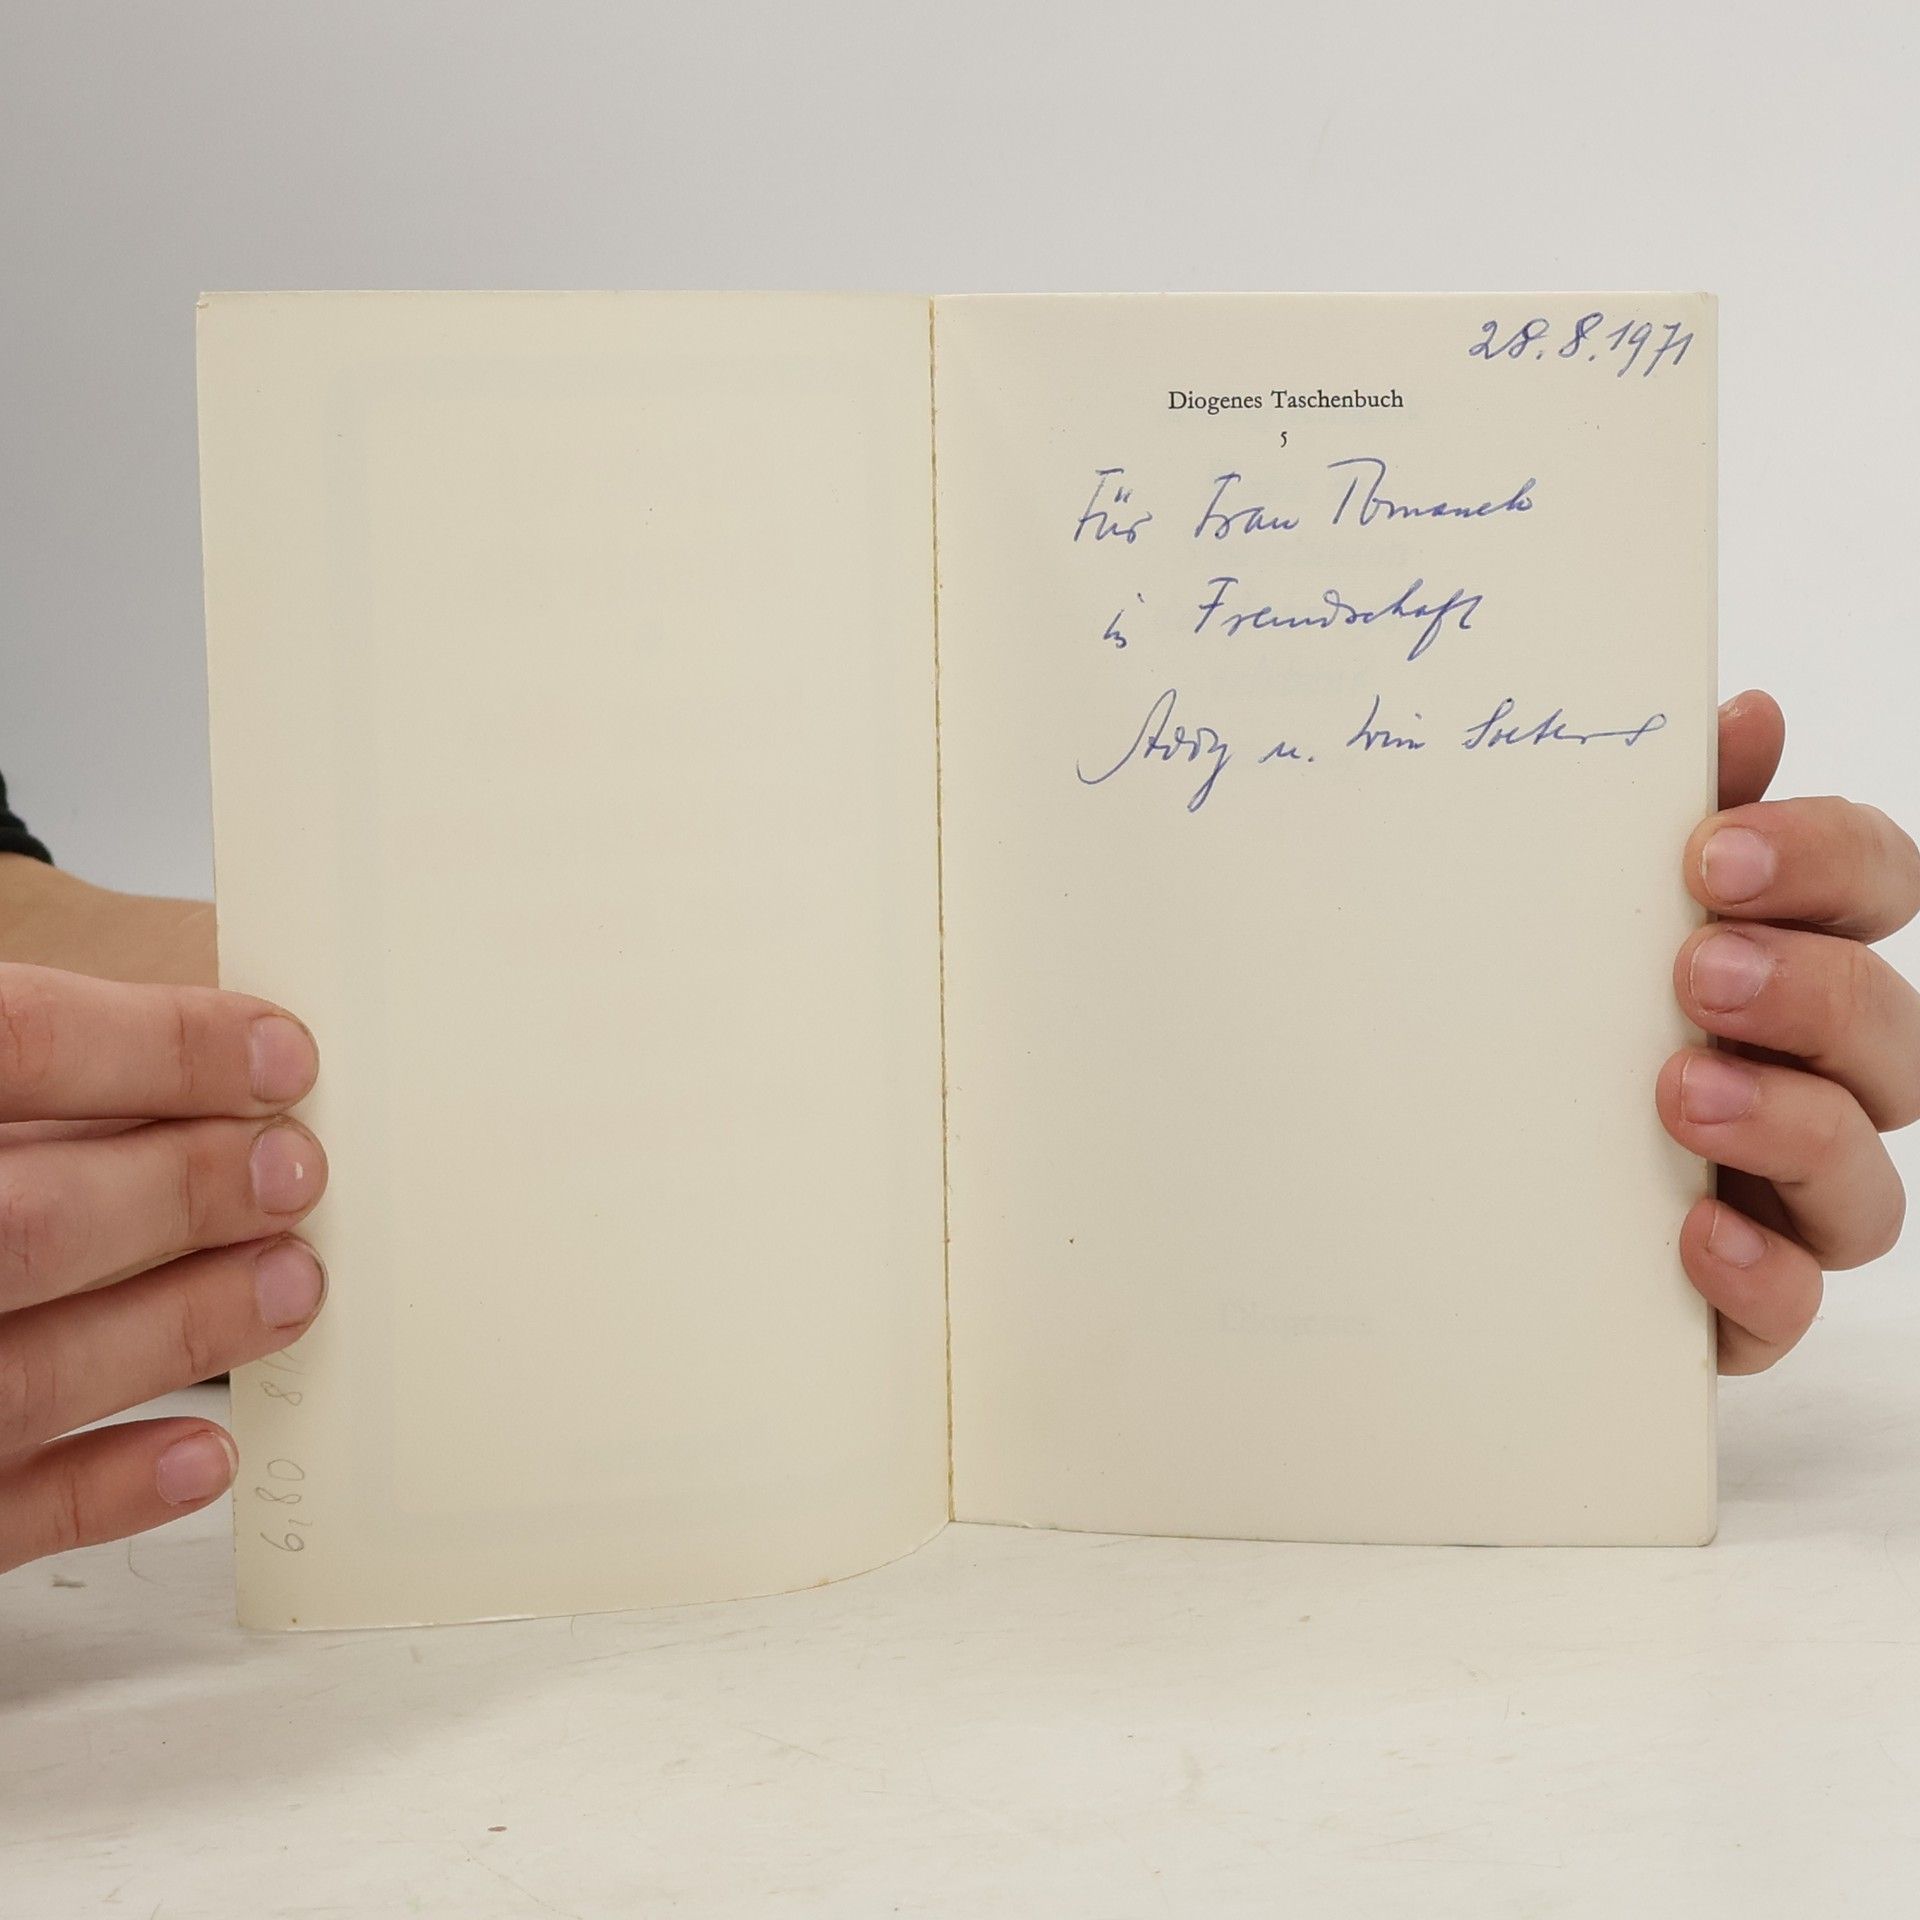 28.8.1971
Diogenes Taschenbuch
5
Für Frau Romanek
in Freundschaft
Addy u. Wim
6,80